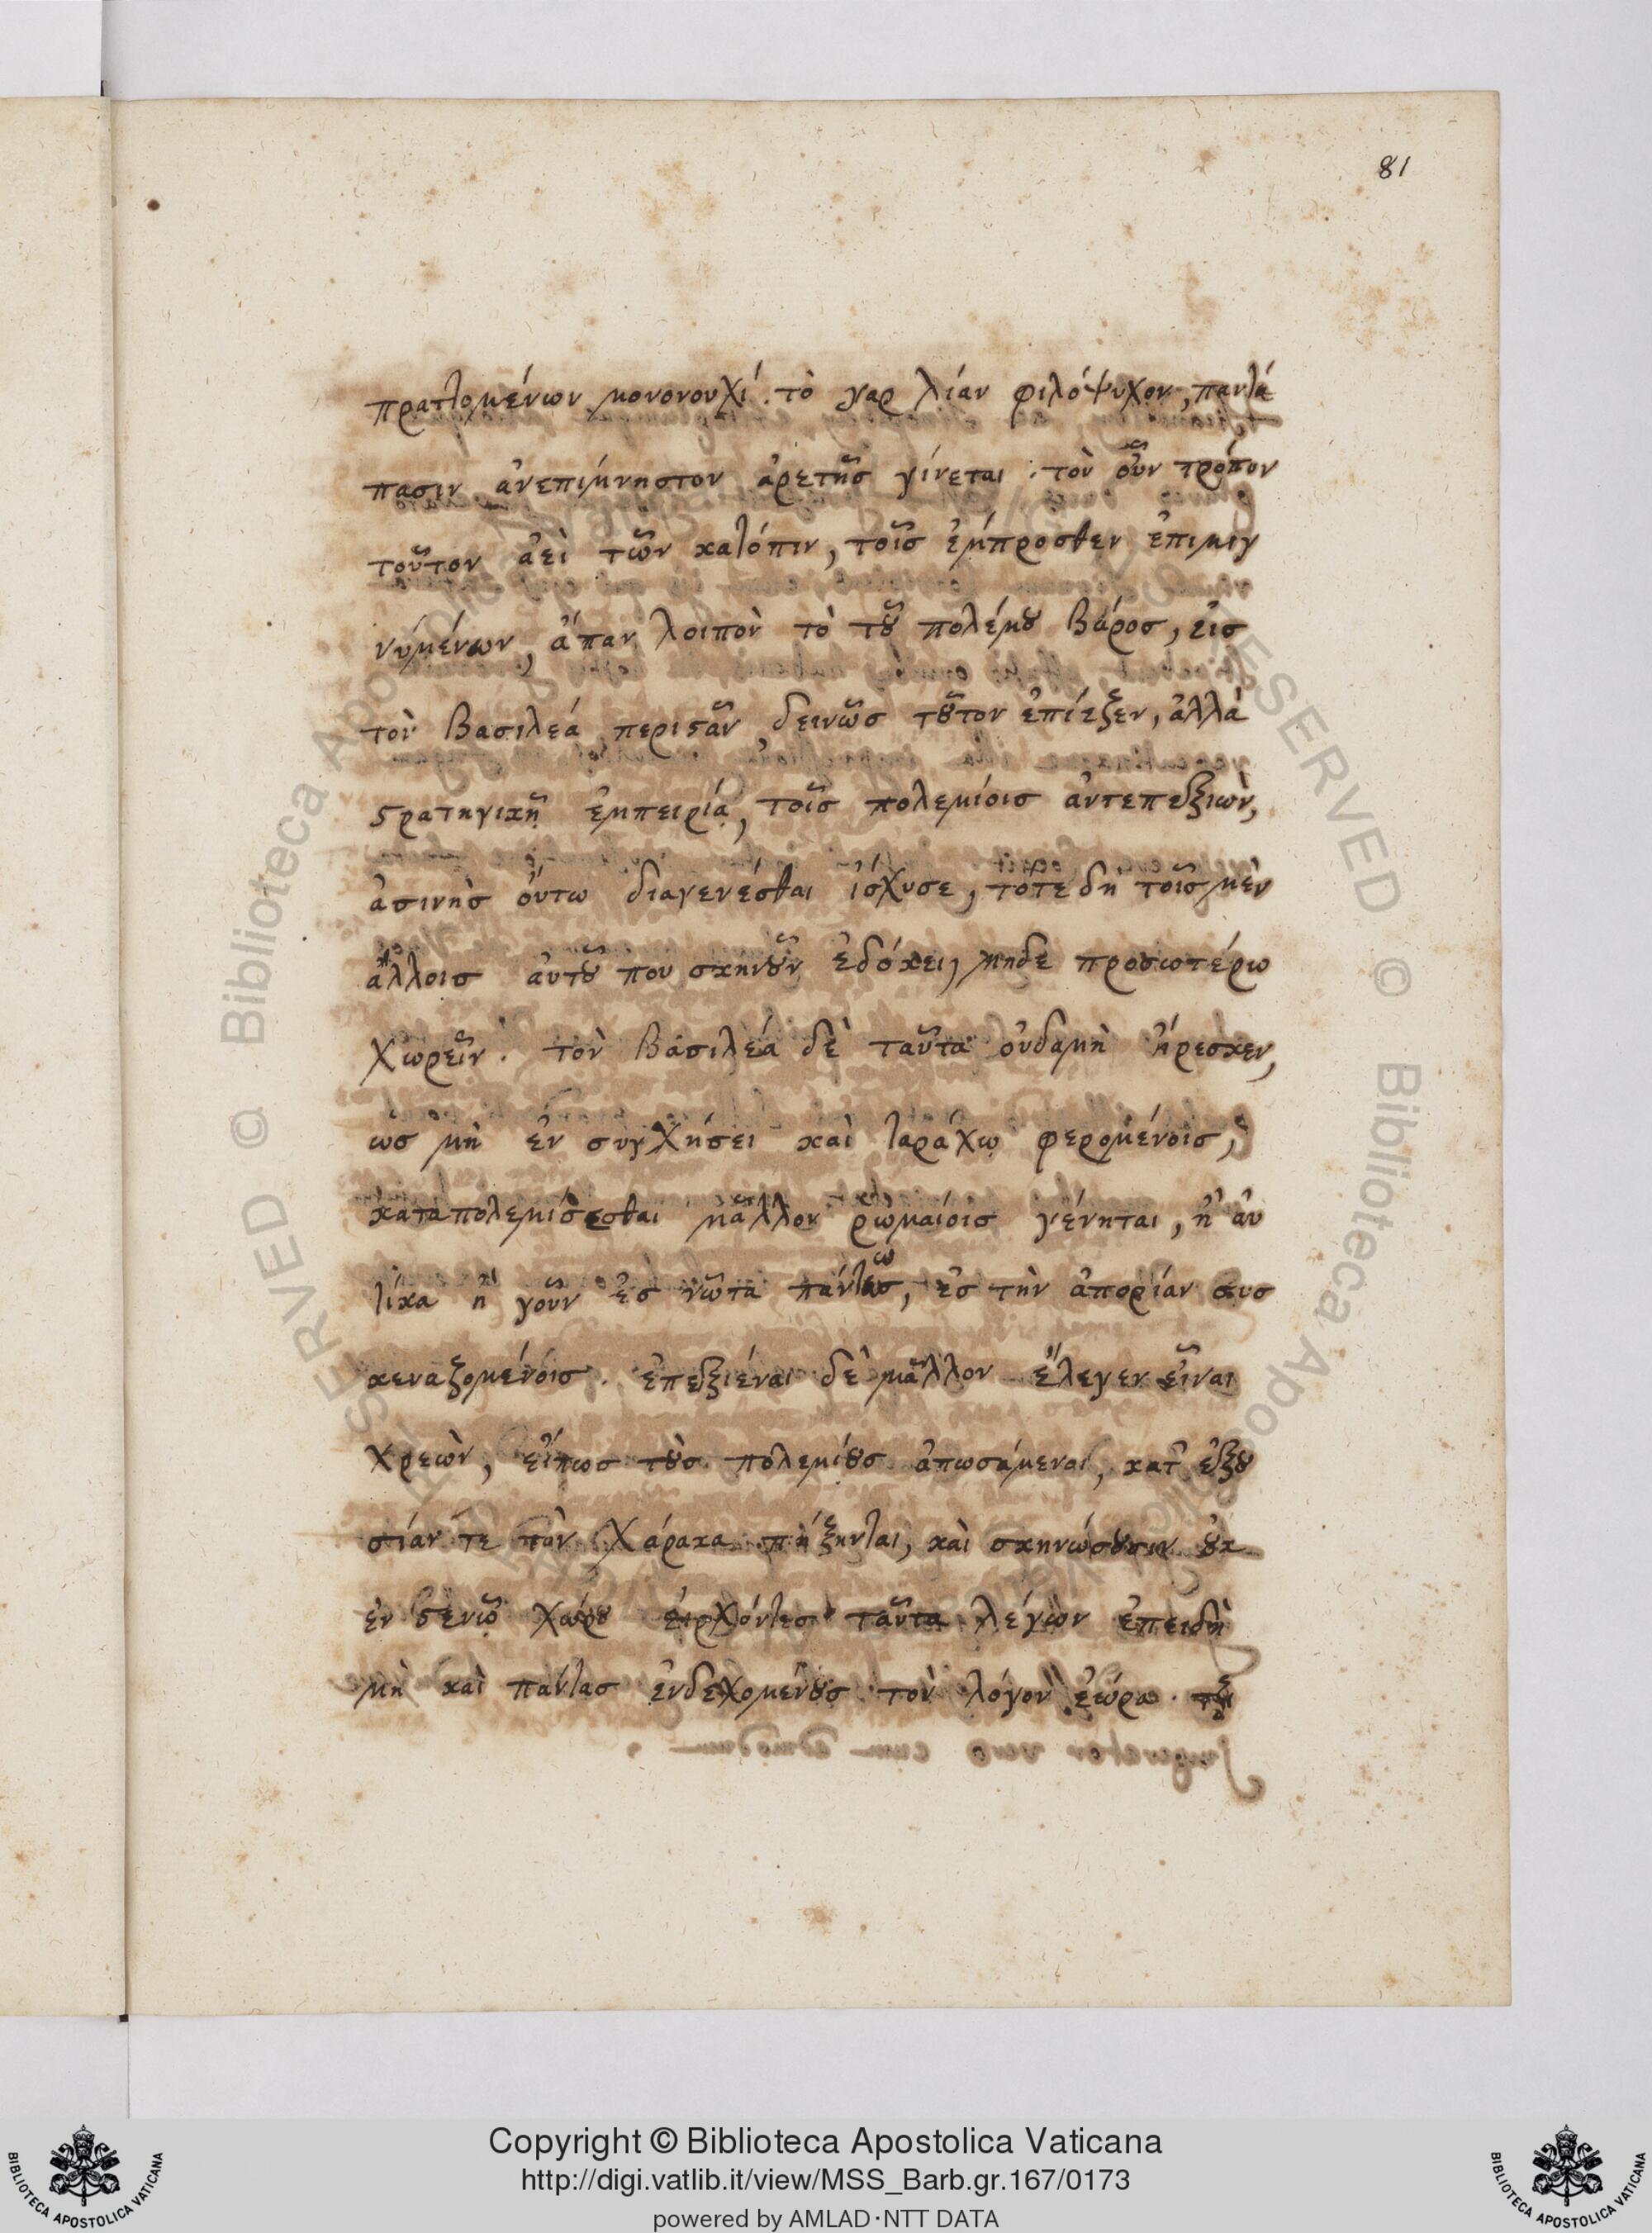 81
πρατλομένων μονονουχί. τὸ γαρ λίαν φιλόψυχον, παντά
πασιν ἀνεπίμνηστον ἀρετῆς γίνεται. τὸν οὖν τρόπον
τοῦτον ἀεὶ τῶν κατόπιν, τοῖς ἐμπροσθεν ἐπιμιγ
νύμένων, ἅπαν λοιπὸν τὸ τȣ͂ πολέμȣ βάρος, εἰς
τὸν Βασιλεά περιϛᾶν δεινῶς τȣ͂τον ἐπίεζεν, ἀλλὰ
ϛρατηγικῇ ἐμπειρίᾳ, τοῖς πολεμίοις ἀντεπεξιὼν,
ἀσινὴς οὕτω διαγενέσθαι ἰσχυσε, τοτε δη τοῖς μὲν
ἄλλοις ἀυτȣ͂ που σκηνȣ͂ν ἐδόκει, μηδε προσωτέρω
χωρεῖν. τὸν Βασιλεά δὲ ταῦτα ὀυδαμὴ ἤρεσκεν,
ως μὴ ἐν συγχήσει καὶ ταράχω φερομένοις,
καταπολεμίσεσθαι μᾶλλον ῥωμαίοις γένηται, ἢ ἀυ
τίκα ἢ γοῦν ἐς νῶτα πάντως, ἐς τὴν ἀπορίαν συσ
κεναζομένοις. ἐπεξιέναι δὲ μᾶλλον ἔλεγεν εἶναι
χρεὼν, εἴπως τȣ̀ς πολεμίȣς ἀπωσάμεναι, κατ᾽ ἐξȣ
σίαν τε τὸν χάρακα πήξηνται, καὶ σκηνώσȣσιν ȣκ
ἐν ϛενῷ χώρȣ ἐιρχόντες ταῦτα λέγων ἐπειδὴ
μὴ καὶ πάντας ἐνδεχομένȣς τὸν λόγον ἑώρα.
Copyright © Biblioteca Apostolica Vaticana
http://digi.vatlib.it/view/MSS_Barb.gr.167/0173
powered by AMLAD·NTT DATA